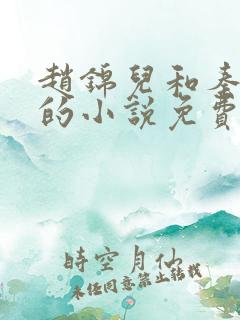 趙錦兒和秦
的小說免費
時空月仙
未经同意禁止转载